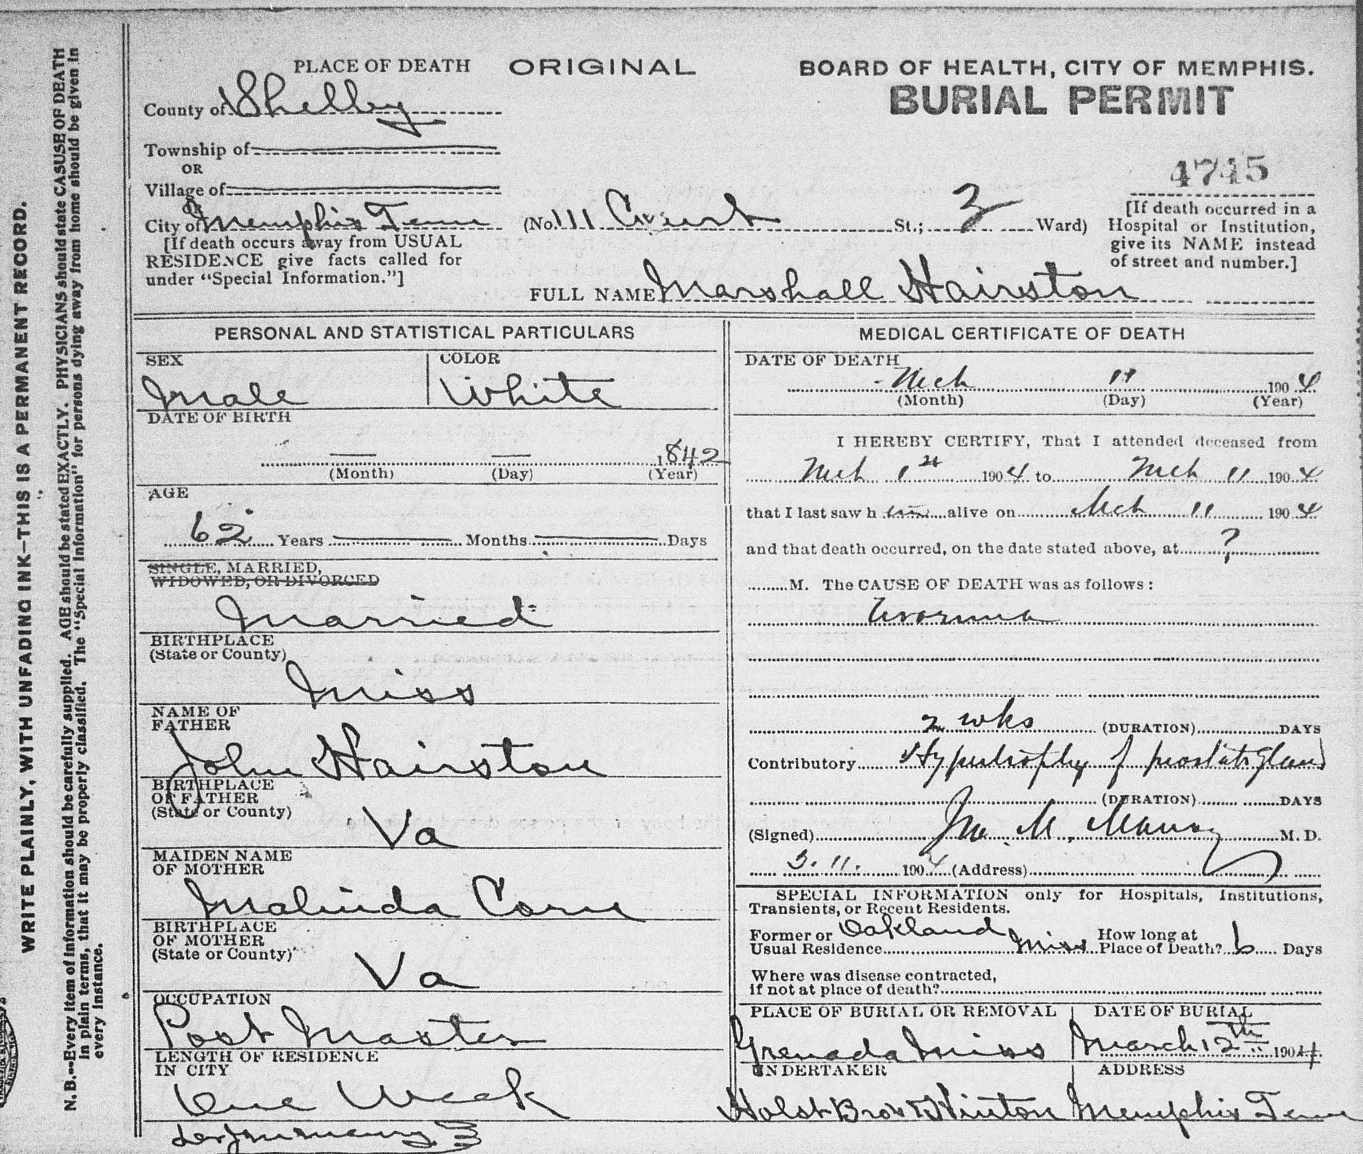 PLACE OF DEATH ORIGINAL
County of Shelby
Township of
OR
Village of
or
City of Memphis Tenn (No. 111 Court St.; 2 Ward)
[If death occurs away from USUAL
RESIDENCE give facts called for
under "Special Information."]
BOARD OF HEALTH, CITY OF MEMPHIS.
BURIAL PERMIT
4745
[If death occurred in a
Hospital or Institution,
give its NAME instead
of street and number.]
FULL NAME Marshall Hairston
PERSONAL AND STATISTICAL PARTICULARS
SEX COLOR
Male White
DATE OF BIRTH
1842
(Month) (Day) (Year)
AGE
62 Years Months Days
SINGLE, MARRIED,
WIDOWED, OR DIVORCED
Married
BIRTHPLACE
(State or County)
Miss
NAME OF
FATHER
John Hairston
BIRTHPLACE
OF FATHER
(State or County)
Va
MAIDEN NAME
OF MOTHER
Malinda Corn
BIRTHPLACE
OF MOTHER
(State or County)
Va
OCCUPATION
Post Master
LENGTH OF RESIDENCE
IN CITY
One Week
MEDICAL CERTIFICATE OF DEATH
DATE OF DEATH
Mch 11 1904
(Month) (Day) (Year)
I HEREBY CERTIFY, That I attended deceased from
Mch 1st 1904 to Mch 11 1904
that I last saw h im alive on Mch 11 1904
and that death occurred, on the date stated above, at ?
M. The CAUSE OF DEATH was as follows:
Uraemia
2 wks (DURATION) DAYS
Contributory Hypertrophy of prostate gland
(DURATION) DAYS
(Signed) Jno. M. Maury M. D.
3.11. 1904 (Address)
SPECIAL INFORMATION only for Hospitals, Institutions,
Transients, or Recent Residents.
Former or Oakland How long at
Usual Residence Miss Place of Death? 6 Days
Where was disease contracted,
if not at place of death?
PLACE OF BURIAL OR REMOVAL DATE OF BURIAL
Grenada Miss March 12th 1904
UNDERTAKER ADDRESS
Holst Bros & Hinton Memphis Tenn
WRITE PLAINLY, WITH UNFADING INK—THIS IS A PERMANENT RECORD.
N. B.--Every item of information should be carefully supplied. AGE should be stated EXACTLY. PHYSICIANS should state CASUSE OF DEATH
in plain terms, that it may be properly classified. The "Special Information" for persons dying away from home should be given in
every instance.